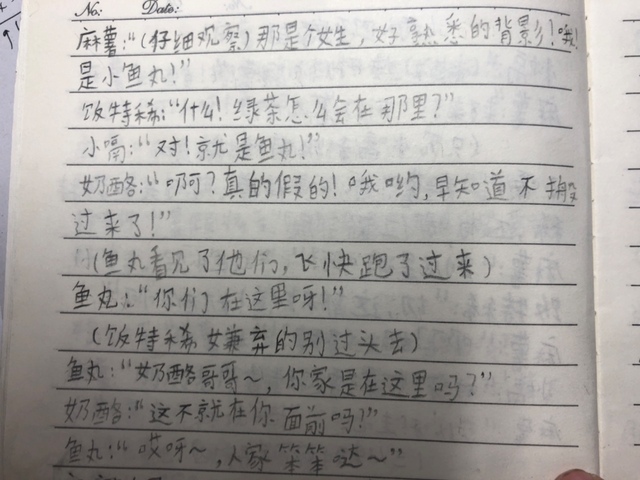 No:        Date:
麻薯：“(仔细观察)那是个女生，好熟悉的背影！哦！
是小鱼丸！”
饭特稀：“什么！绿茶怎么会在那里？”
小嗝：“对！就是鱼丸！”
奶酪：“啊？真的假的！哦哟，早知道不搬
过来了！”
(鱼丸看见了他们，飞快跑了过来)
鱼丸：“你们在这里呀！”
(饭特稀嫌弃的别过头去)
鱼丸：“奶酪哥哥～，你家是在这里吗？”
奶酪：“这不就在你面前吗？”
鱼丸：“哎呀～，人家笨笨哒～”